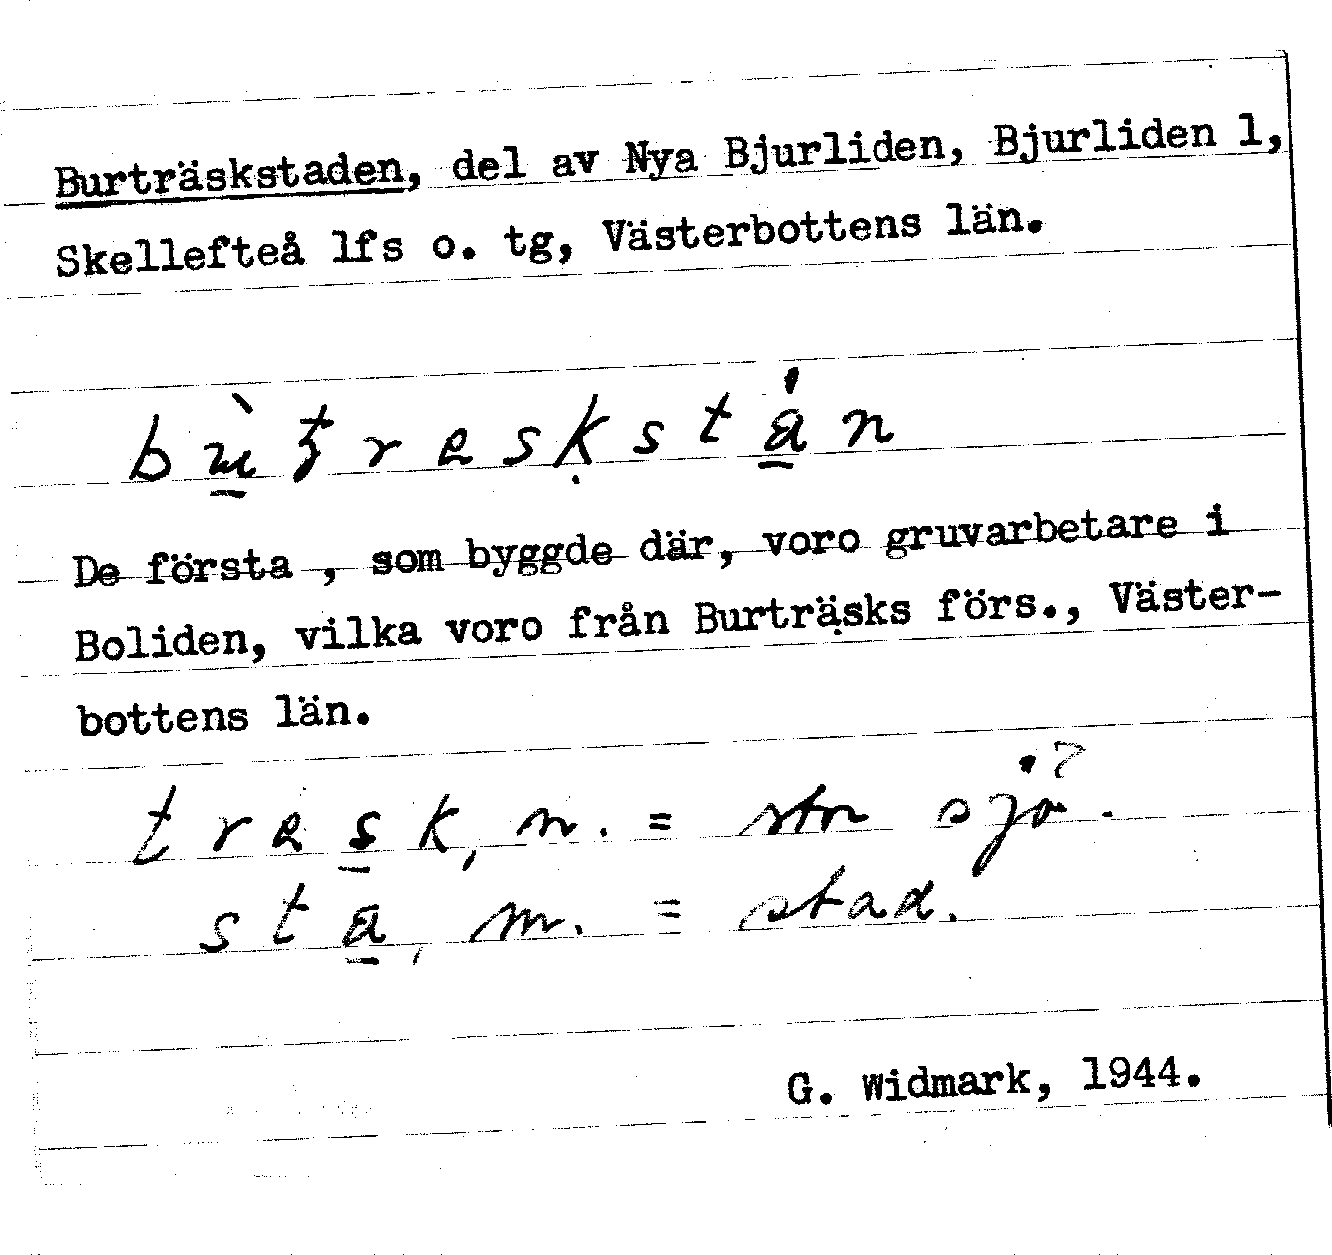 Burträskstaden, del av Nya Bjurliden, Bjurliden 1,
Skellefteå lfs o. tg, Västerbottens län.
De första , som byggde där, voro gruvarbetare i
Boliden, vilka voro från Burträsks förs., Väster-
bottens län.
tresk, n. = stn sjö.
sta, m. = stad.
G. Widmark, 1944.